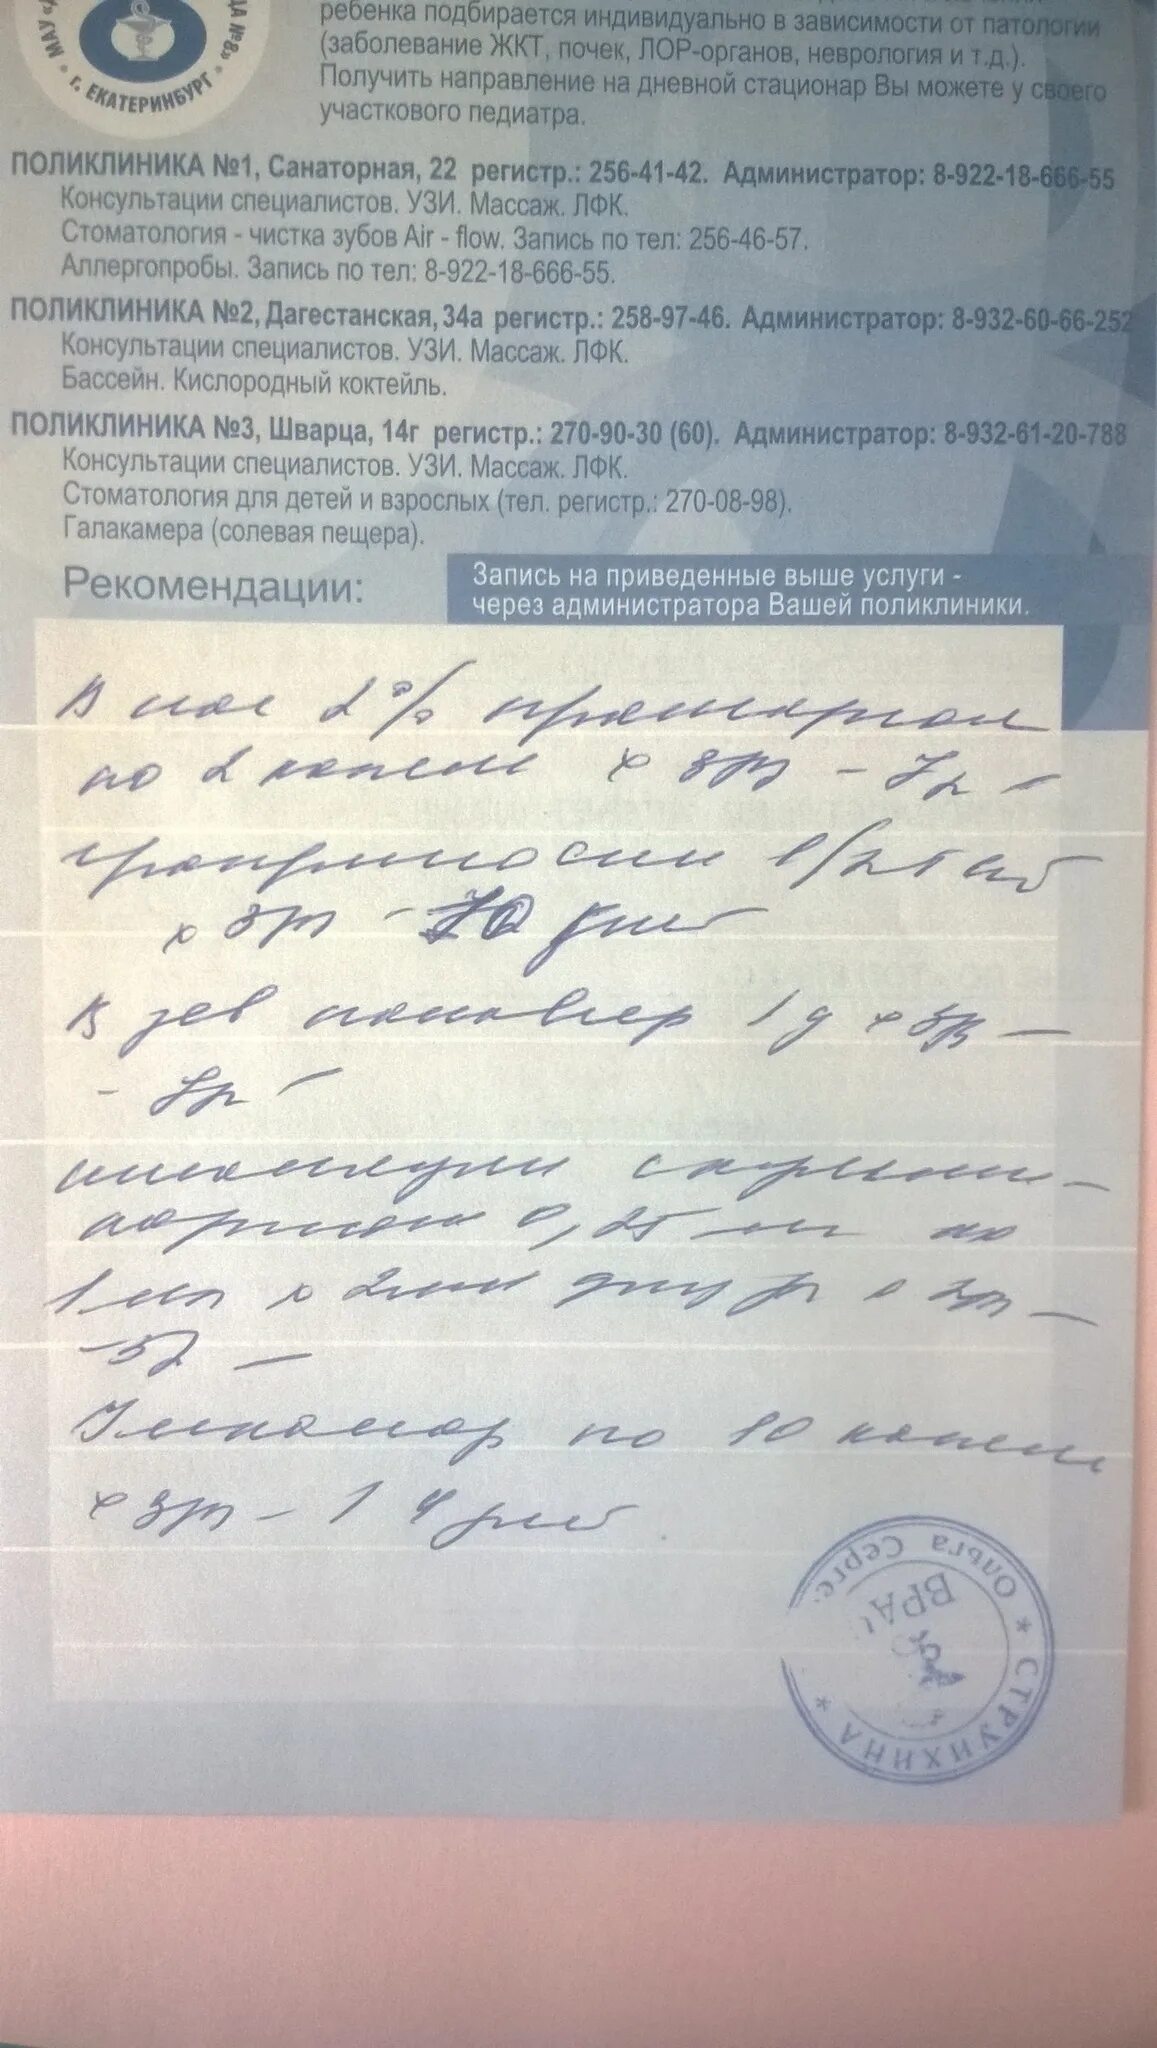 ЦА №8»
МАУ «
г. ЕКАТЕРИНБУРГ
ребенка подбирается индивидуально в зависимости от патологии
(заболевание ЖКТ, почек, ЛОР-органов, неврология и т.д.).
Получить направление на дневной стационар Вы можете у своего
участкового педиатра.
ПОЛИКЛИНИКА №1, Санаторная, 22 регистр.: 256-41-42. Администратор: 8-922-18-666-55
Консультации специалистов. УЗИ. Массаж. ЛФК.
Стоматология - чистка зубов Air - flow. Запись по тел: 256-46-57.
Аллергопробы. Запись по тел: 8-922-18-666-55.
ПОЛИКЛИНИКА №2, Дагестанская, 34а регистр.: 258-97-46. Администратор: 8-932-60-66-252
Консультации специалистов. УЗИ. Массаж. ЛФК.
Бассейн. Кислородный коктейль.
ПОЛИКЛИНИКА №3, Шварца, 14г регистр.: 270-90-30 (60). Администратор: 8-932-61-20-788
Консультации специалистов. УЗИ. Массаж. ЛФК.
Стоматология для детей и взрослых (тел. регистр.: 270-08-98).
Галакамера (солевая пещера).
Рекомендации:
Запись на приведенные выше услуги -
через администратора Вашей поликлиники.
В нос 2% протаргол
по 2 капели х 3р
гроприносин 1/2 таб
х 3р - 10 дней
В зев 1 д х 3р -
ингаляции
0,25 мг на
1 мл х 2 мл х 2р -
по 10 капель
х 3р - 14 дней
* СТРУИХИНА * Ольга Серге
ВРА